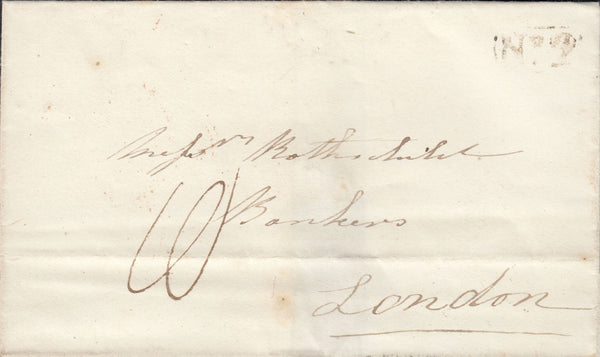 No. 2
Messrs Rothschild
Bankers
10
London